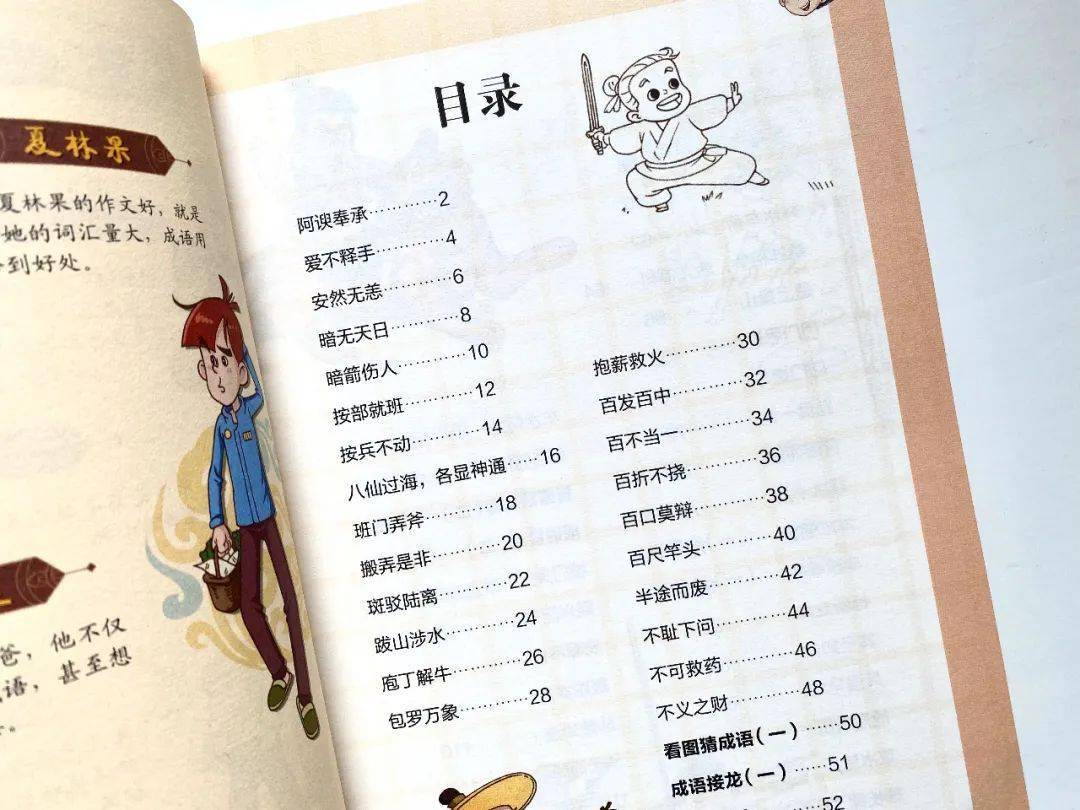 夏林果
夏林果的作文好，就是
她的词汇量大，成语用
到好处。
爸，他不仅
语，甚至想
目录
阿谀奉承…………2
爱不释手…………4
安然无恙…………6
暗无天日…………8
暗箭伤人…………10
按部就班…………12
按兵不动…………14
八仙过海，各显神通……16
班门弄斧…………18
搬弄是非…………20
斑驳陆离…………22
跋山涉水…………24
庖丁解牛…………26
包罗万象…………28
抱薪救火…………30
百发百中…………32
百不当一…………34
百折不挠…………36
百口莫辩…………38
百尺竿头…………40
半途而废…………42
不耻下问…………44
不可救药…………46
不义之财…………48
看图猜成语（一）……50
成语接龙（一）……51
52